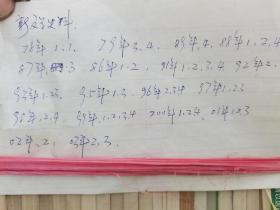 新文学史料.
78年1.1. 79年3.4. 89年.4. 88年1.2.4
87年.3 86年1.2. 91年1.2.3.4 92年2.
93年1.23. 95年1.3. 96年2.3.4 97年1.23
98年.2.4 99年.1.2.3.4 2000年1.2.4. 01年1.3
02年.2. 03年2.3.